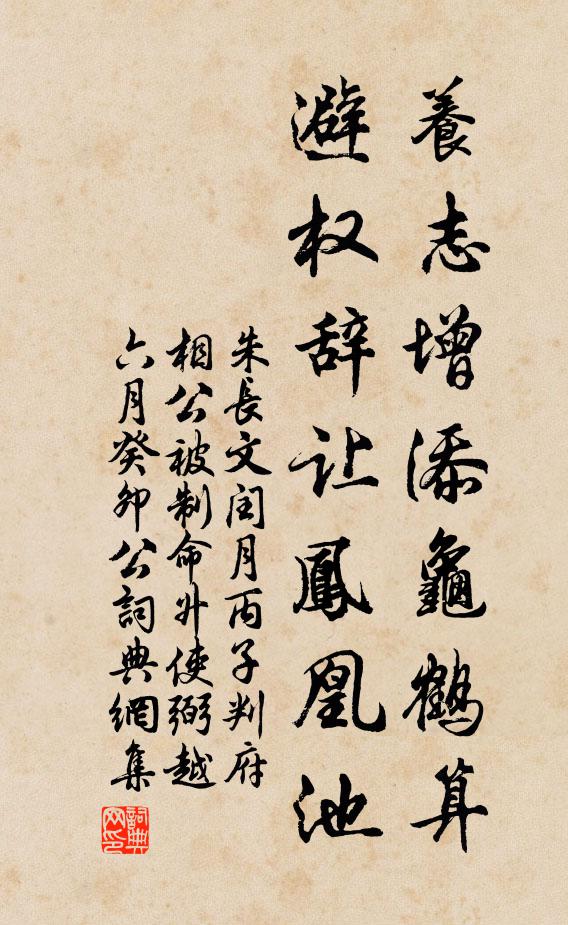 養志增添龜鶴算
避权辞让鳳凰池
朱長文閏月丙子判府
相公被制命外使弼越
六月癸卯公詞典網集
詞典网印